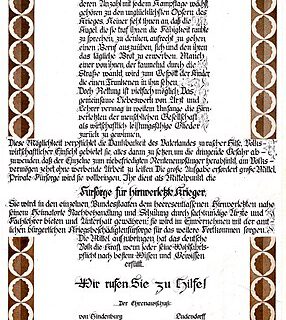 deren Anzahl mit jedem Kampftage wächst,
gehören zu den unglücklichsten Opfern des
Krieges. Keiner sieht ihnen an, daß die
Kugel, die sie traf ihnen die Fähigkeit raubte
zu sprechen, zu denken, aufrecht zu gehen,
einen Beruf auszuüben, sich und den ihren
das tägliche Brot zu erwerben. Manch
einer von ihnen, der taumelnd durch die
Straße wankt, wird zum Gespött der Kinder
die einen Trunkenen in ihm sehen.
Doch Rettung ist vielen möglich. Das
gemeinsame Liebeswerk von Arzt und
Lehrer vermag in weitem Umfange die Hirn-
verletzten der menschlichen Gesellschaft
als wirtschaftlich leistungsfähige Glieder
zurück zu gewinnen.
Diese Möglichkeit verpflichtet die Dankbarkeit des Vaterlandes zu rascher Hilfe. Volks-
wirtschaftlicher Einsicht gebietet sie, alles daran zu setzen um die dringende Gefahr ab-
zuwenden, daß der Einzelne zum unbefriedigten Rentenempfänger herabsinkt, am Volks-
vermögen zehrt ohne werbende Arbeit zu leisten. Die große Aufgabe erfordert große Mittel.
Private Fürsorge wird sie vollbringen. Ihr dient als Mittelpunkt die
Fürsorge für hirnverletzte Krieger.
Sie wird in den einzelnen Bundesstaaten dem heeresentlassenen Hirnverletzten nahe
seinem Heimatorte Nachbehandlung und Schulung durch sachkundige Ärzte und
Fachlehrer bieten und Unterhalt gewähren; sie wird im Einvernehmen mit der amt-
lichen bürgerlichen Kriegsbeschädigtenfürsorge für das weitere Fortkommen sorgen.
Die Mittel aufzubringen hat das deutsche
Volk die Kraft, wenn jeder seine Wohlfahrts-
pflicht nach bestem Wissen und Gewissen
erfüllt.
Wir rufen Sie zu Hilfe!
Der Ehrenausschuß:
von Hindenburg Ludendorff